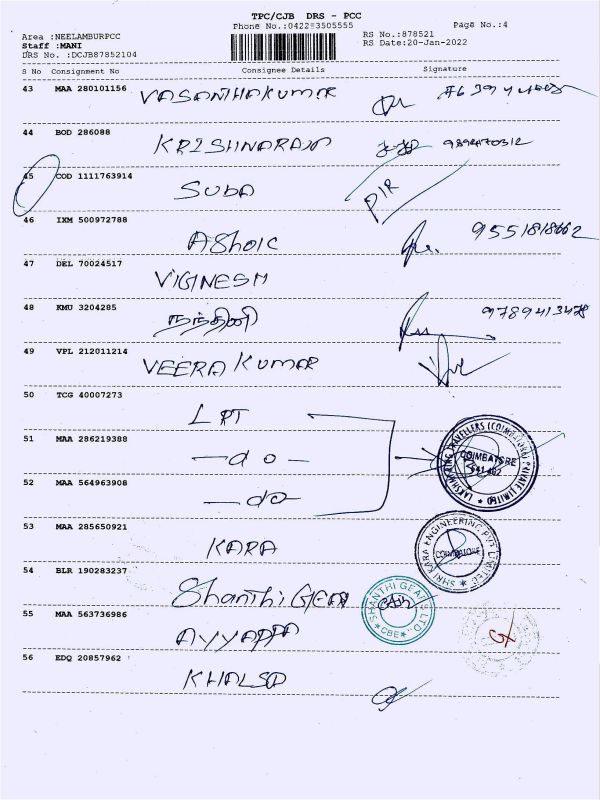 TPC/CJB DRS - PCC
Phone No.:0422-3505555
Page No.:4
Area :NEELAMBURPCC
RS No.:878521
Staff :MANI
RS Date:20-Jan-2022
DRS No. :DCJB87852104
S No Consignment No Consignee Details Signature
43 MAA 280101156 VASANTHAKUMAR
44 BOD 286088 KRISHNARAJ
45 COD 1111763914 SUBA
46 IXM 500972788 AShOK 9551818662
47 DEL 70024517 VIGINESH
48 KMU 3204285 நந்தினி 9789413478
49 VPL 212011214 VEERAKUMAR
50 TCG 40007273 LRT
51 MAA 286219388 —do—
52 MAA 564963908 —do—
LAKSHMI RING TRAVELLERS (COIMBATORE) PRIVATE LIMITED
COIMBATORE
641 402
53 MAA 285650921 KARA
SHRI KARA ENGINEERING PVT LIMITED
COIMBATORE
54 BLR 190283237 Shanthi GEAR
SHANTHI GEARS LTD.
CBE
55 MAA 563736986 AYYAPPA
56 EDQ 20857962 KHALSA